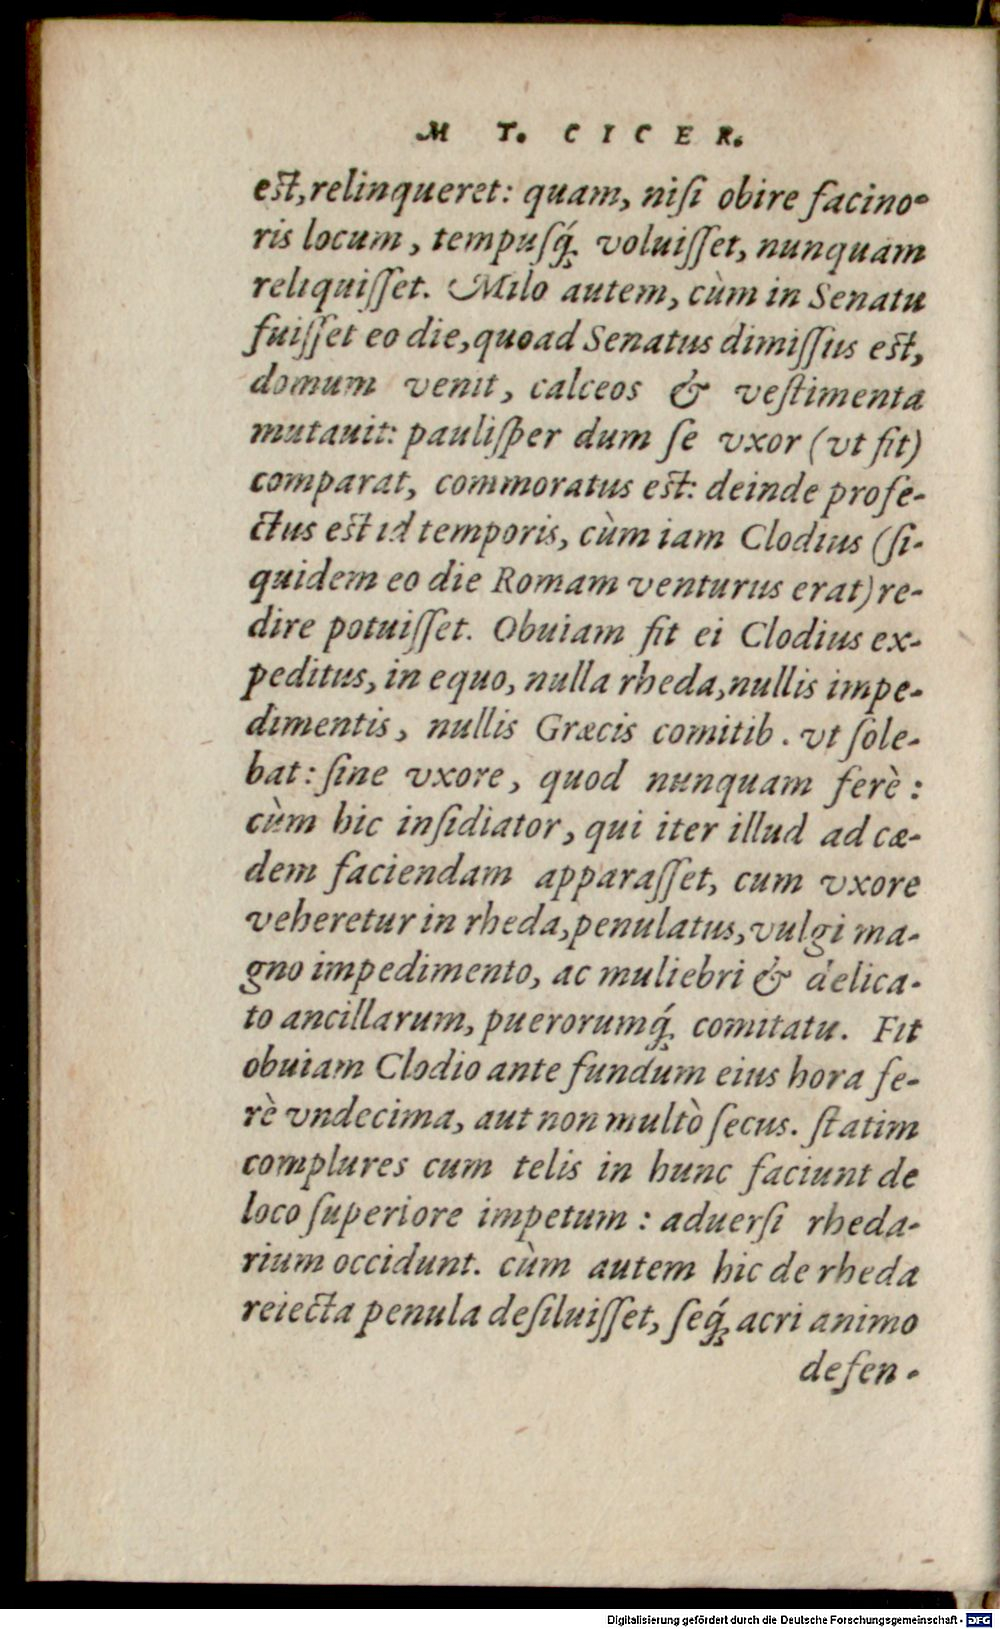 M T. CICER.
est, relinqueret: quam, nisi obire facino-
ris locum, tempusq́; voluisset, nunquam
reliquisset. Milo autem, cùm in Senatu
fuisset eo die, quoad Senatus dimissus est,
domum venit, calceos & vestimenta
mutauit: paulisper dum se vxor (vt fit)
comparat, commoratus est: deinde profe-
ctus est id temporis, cùm iam Clodius (si-
quidem eo die Romam venturus erat) re-
dire potuisset. Obuiam fit ei Clodius ex-
peditus, in equo, nulla rheda, nullis impe-
dimentis, nullis Græcis comitib. vt sole-
bat: sine vxore, quod nunquam ferè:
cùm hic insidiator, qui iter illud ad cæ-
dem faciendam apparasset, cum vxore
veheretur in rheda, penulatus, vulgi ma-
gno impedimento, ac muliebri & delica-
to ancillarum, puerorumq́; comitatu. Fit
obuiam Clodio ante fundum eius hora fe-
rè vndecima, aut non multò secus. statim
complures cum telis in hunc faciunt de
loco superiore impetum: aduersi rheda-
rium occidunt. cùm autem hic de rheda
reiecta penula desiluisset, seq́; acri animo
defen-
Digitalisierung gefördert durch die Deutsche Forschungsgemeinschaft - DFG